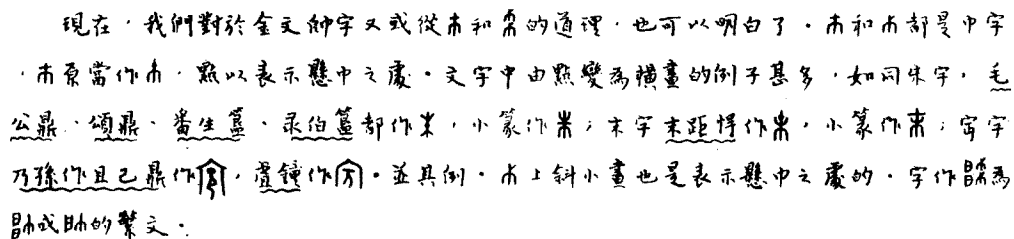 現在，我們對於金文帥字又或從巿和𣎵的道理，也可以明白了。巿和巿都是巾字
，巿原當作巿，點以表示懸巾之處。文字中由點變為橫畫的例子甚多，如同朱字，毛
公鼎、頌鼎、番生簋、彔伯簋部作朱，小篆作朱；末字末距愕作末，小篆作末；宕字
乃孫作且己鼎作，虘鐘作。並其例。巿上斜小畫也是表示懸巾之處的。字作為
帥或帥的繁文。